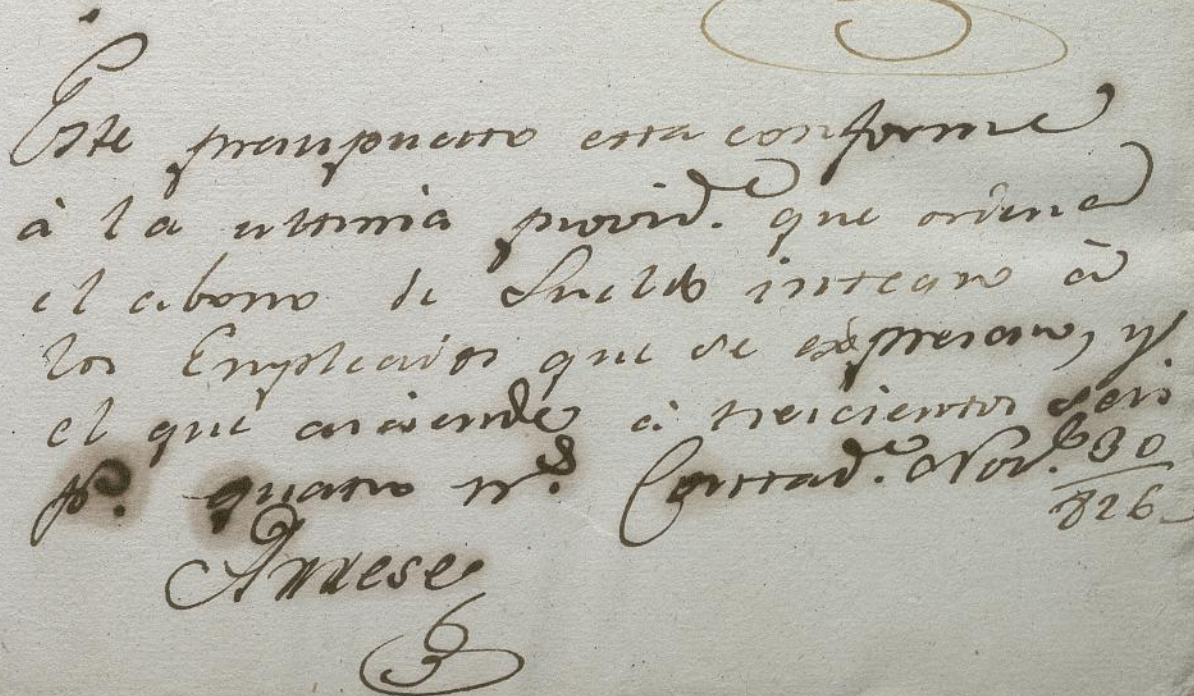 Este presupuesto esta conforme
à la ultima provid.ª que ordena
el abono de Sueldo integro à
los Empleados que se expresan, y
el que asciende à trescientos seis
p.s quatro rr.s Contad.ª Nov.e 30
826
Arrese